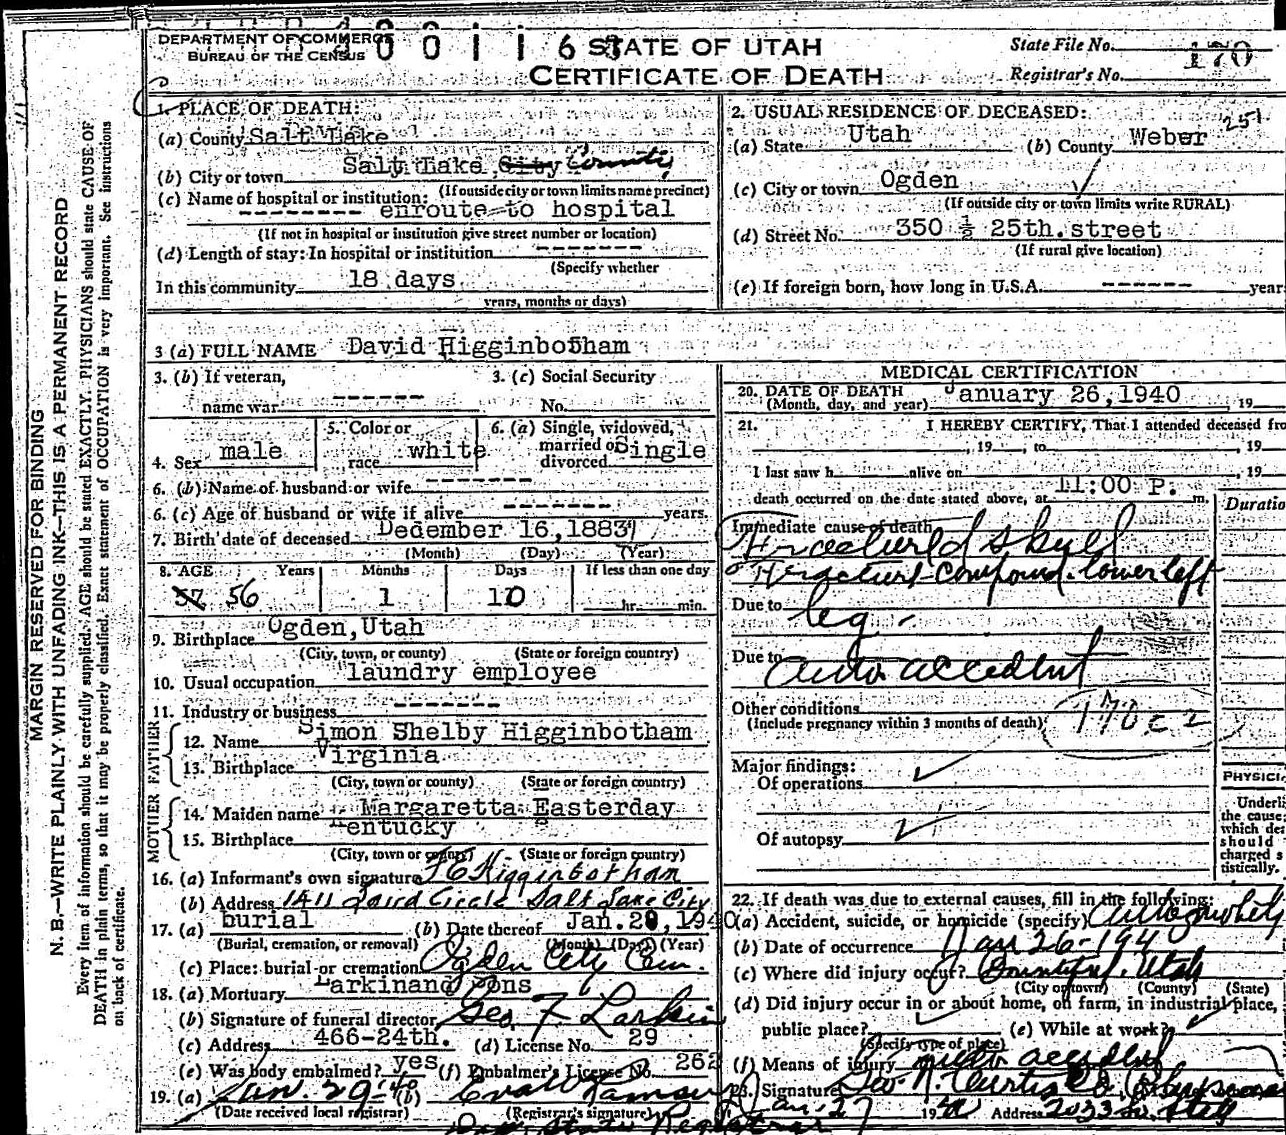 DEPARTMENT OF COMMERCE
BUREAU OF THE CENSUS
STATE OF UTAH
CERTIFICATE OF DEATH
State File No. 170
Registrar's No.
MARGIN RESERVED FOR BINDING
N. B.—WRITE PLAINLY WITH UNFADING INK—THIS IS A PERMANENT RECORD
Every item of information should be carefully supplied. AGE should be stated EXACTLY. PHYSICIANS should state CAUSE OF
DEATH in plain terms, so that it may be properly classified. Exact statement of OCCUPATION is very important. See instructions
on back of certificate.
1. PLACE OF DEATH:
(a) County Salt Lake
(b) City or town Salt Lake City County
(If outside city or town limits name precinct)
(c) Name of hospital or institution:
------- enroute to hospital
(If not in hospital or institution give street number or location)
(d) Length of stay: In hospital or institution -------
(Specify whether
In this community 18 days
years, months or days)
2. USUAL RESIDENCE OF DECEASED: 251
(a) State Utah (b) County Weber
(c) City or town Ogden
(If outside city or town limits write RURAL)
(d) Street No. 350 ½ 25th. street
(If rural give location)
(e) If foreign born, how long in U.S.A. ------ year
3 (a) FULL NAME David Higginbotham
3. (b) If veteran,
name war ------
3. (c) Social Security
No.
4. Sex male
5. Color or
race white
6. (a) Single, widowed,
married or
divorced Single
6. (b) Name of husband or wife -------
6. (c) Age of husband or wife if alive ------- years.
7. Birth date of deceased Dedember 16, 1883
(Month) (Day) (Year)
8. AGE Years Months Days If less than one day
57 56 1 10 hr. min.
9. Birthplace Ogden, Utah
(City, town, or county) (State or foreign country)
10. Usual occupation laundry employee
11. Industry or business -------
FATHER
12. Name Simon Shelby Higginbotham
13. Birthplace Virginia
(City, town or county) (State or foreign country)
MOTHER
14. Maiden name Margaretta Easterday
15. Birthplace Kentucky
(City, town or county) (State or foreign country)
16. (a) Informant's own signature Higginbotham
(b) Address 1411 Laird Circle Salt Lake City
17. (a) burial (b) Date thereof Jan. 1940
(Burial, cremation, or removal) (Month) (Day) (Year)
(c) Place: burial or cremation Ogden City Cem.
18. (a) Mortuary Larkinand Sons
(b) Signature of funeral director Geo. F. Larkin
(c) Address 466-24th. (d) License No. 29
(e) Was body embalmed? yes (f) Embalmer's License No. 262
19. (a) Jan. 29-40 (b)
(Date received local registrar) (Registrar's signature)
MEDICAL CERTIFICATION
20. DATE OF DEATH
(Month, day, and year) January 26, 1940, 19
21. I HEREBY CERTIFY, That I attended deceased fro
, 19 , to , 19
I last saw h alive on , 19
death occurred on the date stated above, at 11:00 P. m.
Duratio
Immediate cause of death
Fractured skull
Fracture-compound. lower left
Due to leg.
Due to auto accident
Other conditions
(Include pregnancy within 3 months of death) 170c2
Major findings:
Of operations
Of autopsy
PHYSICI
Underli
the cause
which dea
should
charged s
tistically.
22. If death was due to external causes, fill in the following:
(a) Accident, suicide, or homicide (specify)
(b) Date of occurrence Jan 26-194
(c) Where did injury occur? Bountiful. Utah
(City or town) (County) (State)
(d) Did injury occur in or about home, on farm, in industrial place,
public place? (e) While at work?
(Specify type of place)
(f) Means of injury auto accident
23. Signature Geo. N. Curtis
Jan. 27 19 Address